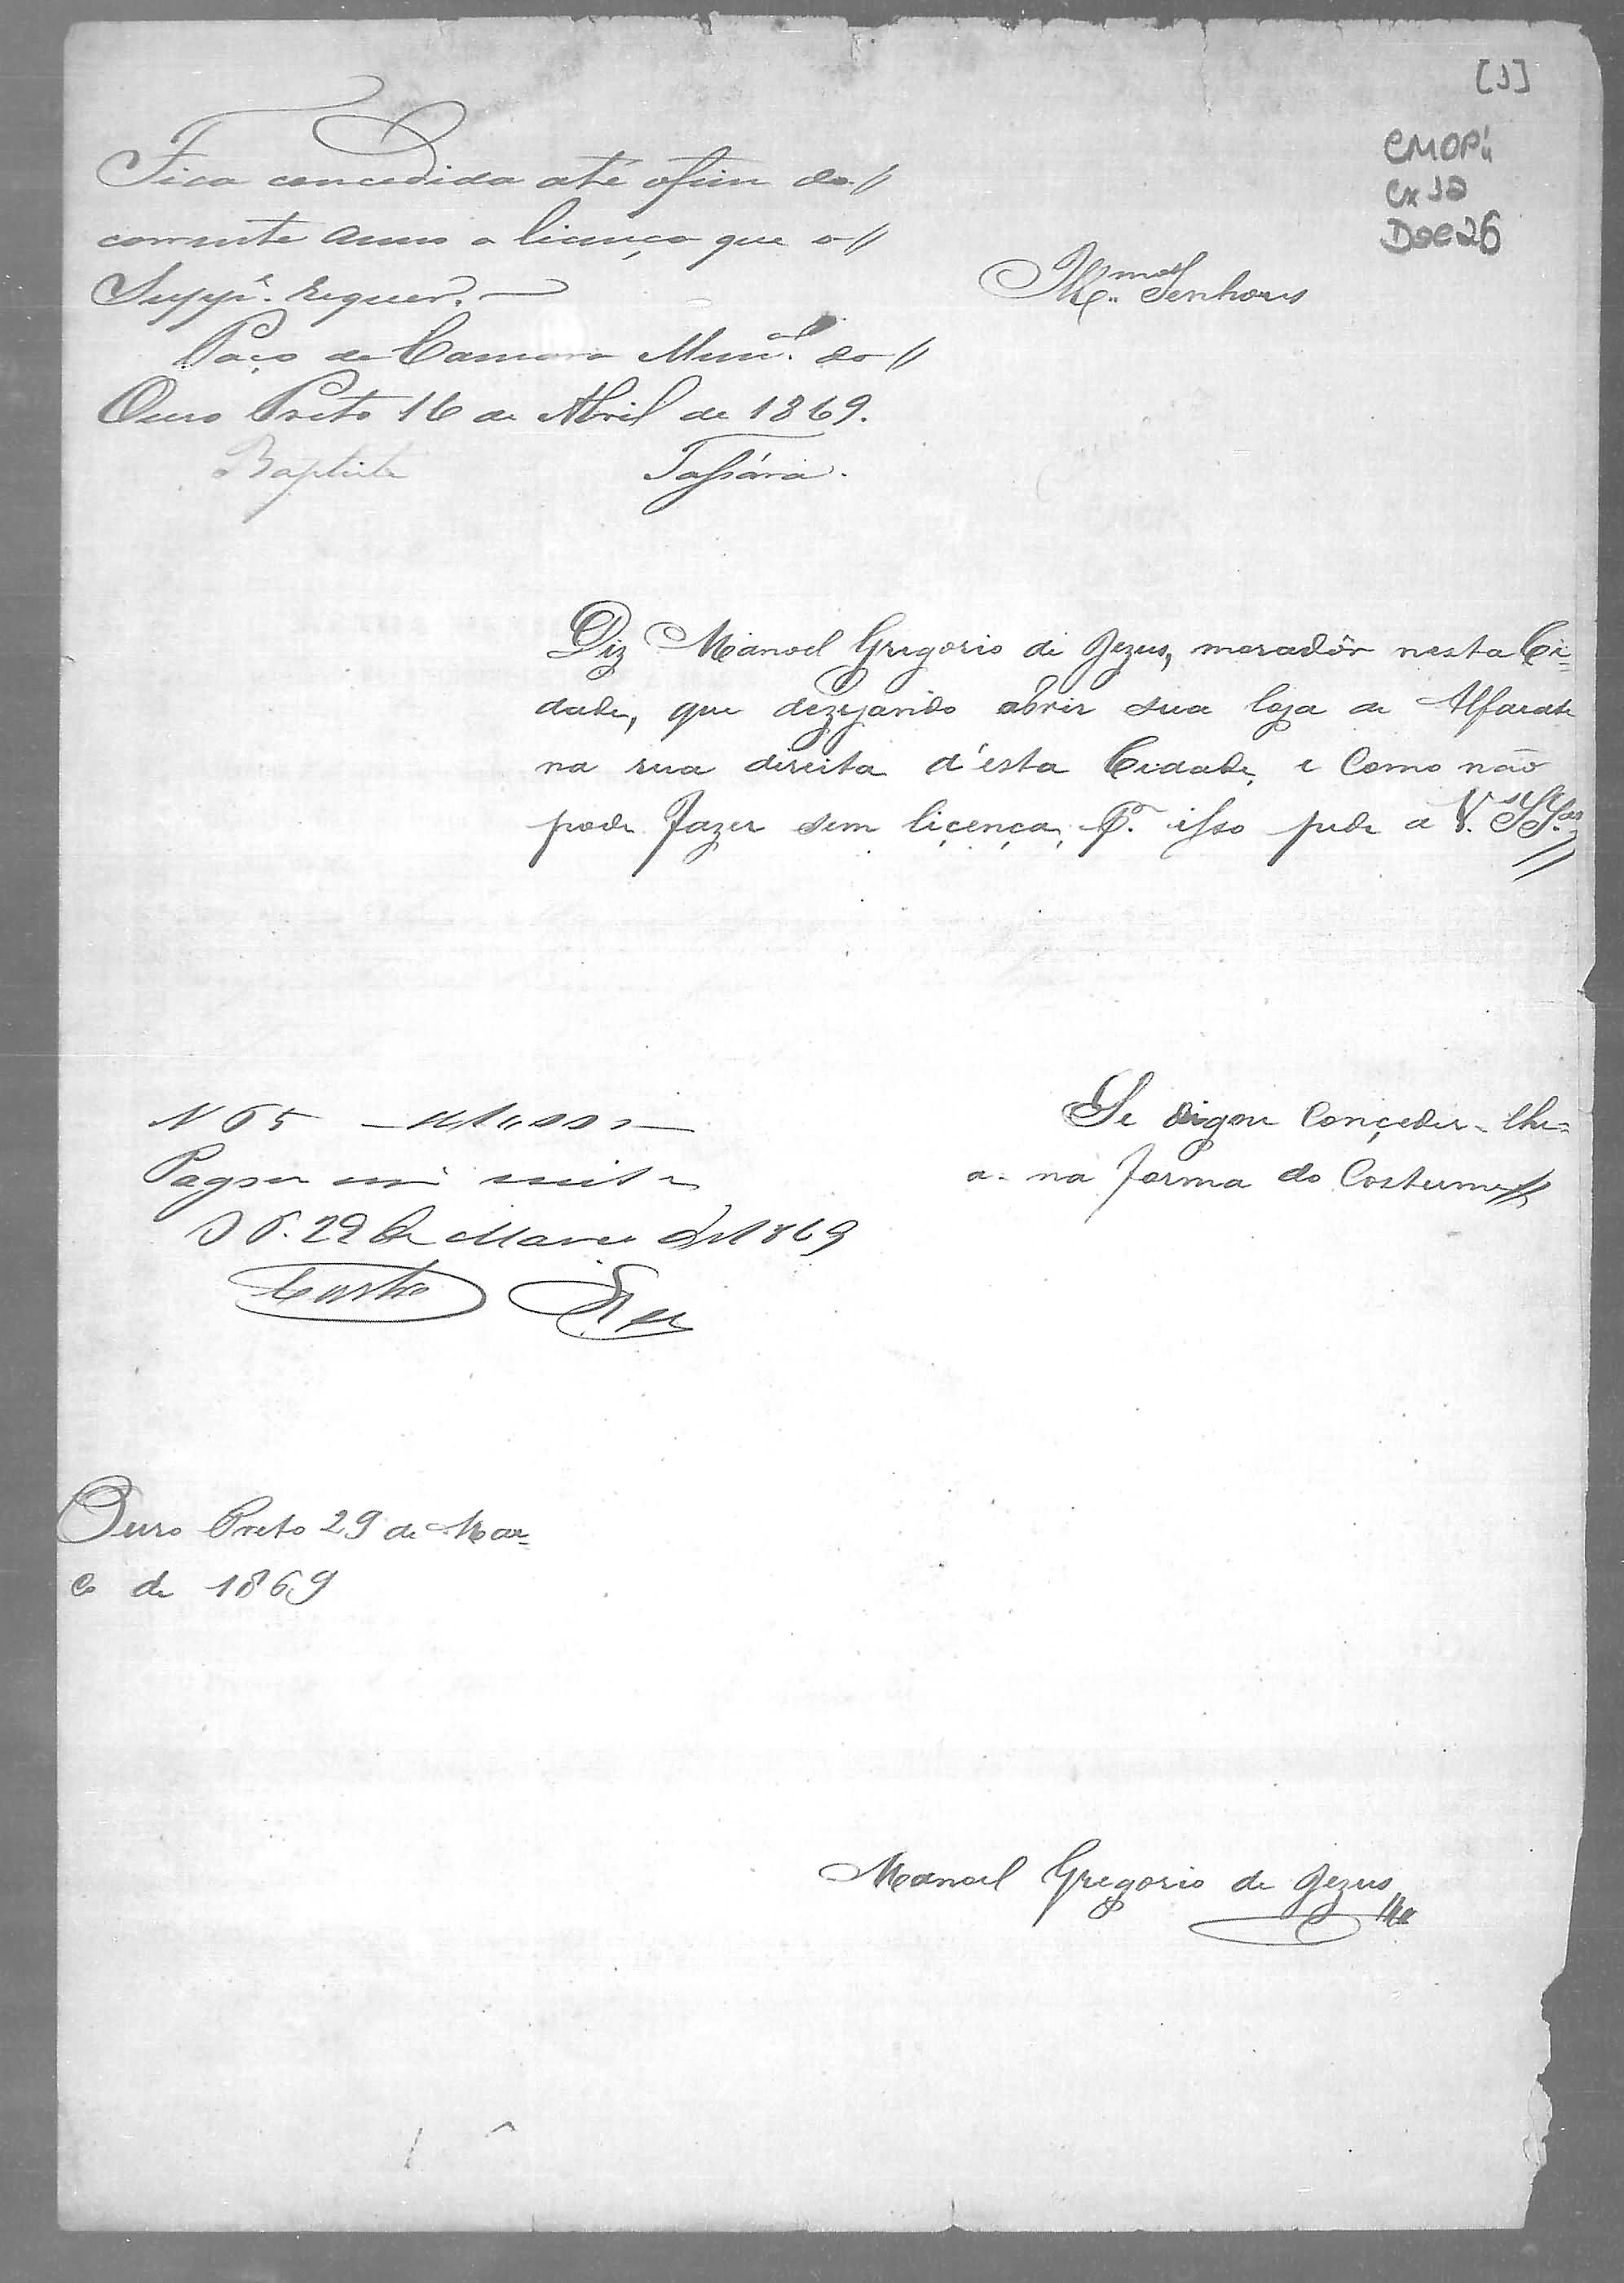 [1]
CMOP
Cx 12
Doc 26
Fica concedida até o fim do
corrente anno a licença que o
Suppe. requer.
Paço da Camara Munal. do
Ouro Preto 16 de Abril de 1869.
Baptista Tassára.
Illmos. Senhores
Diz Manoel Gregorio de Jezus, moradôr nesta Ci=
dade, que dezejando abrir sua loja de Alfaiate
na rua direita d'esta Cidade, e Como não
pode fazer sem liçença, Pr. isso pede a V. SSas
Se digne Conçeder-lhe=
a. na forma do Costume
N 65
Pagou mil
O P. 29 de Março de 1869
Costa
Ouro Preto 29 de Mar-
ço de 1869
Manoel Gregorio de Jezus